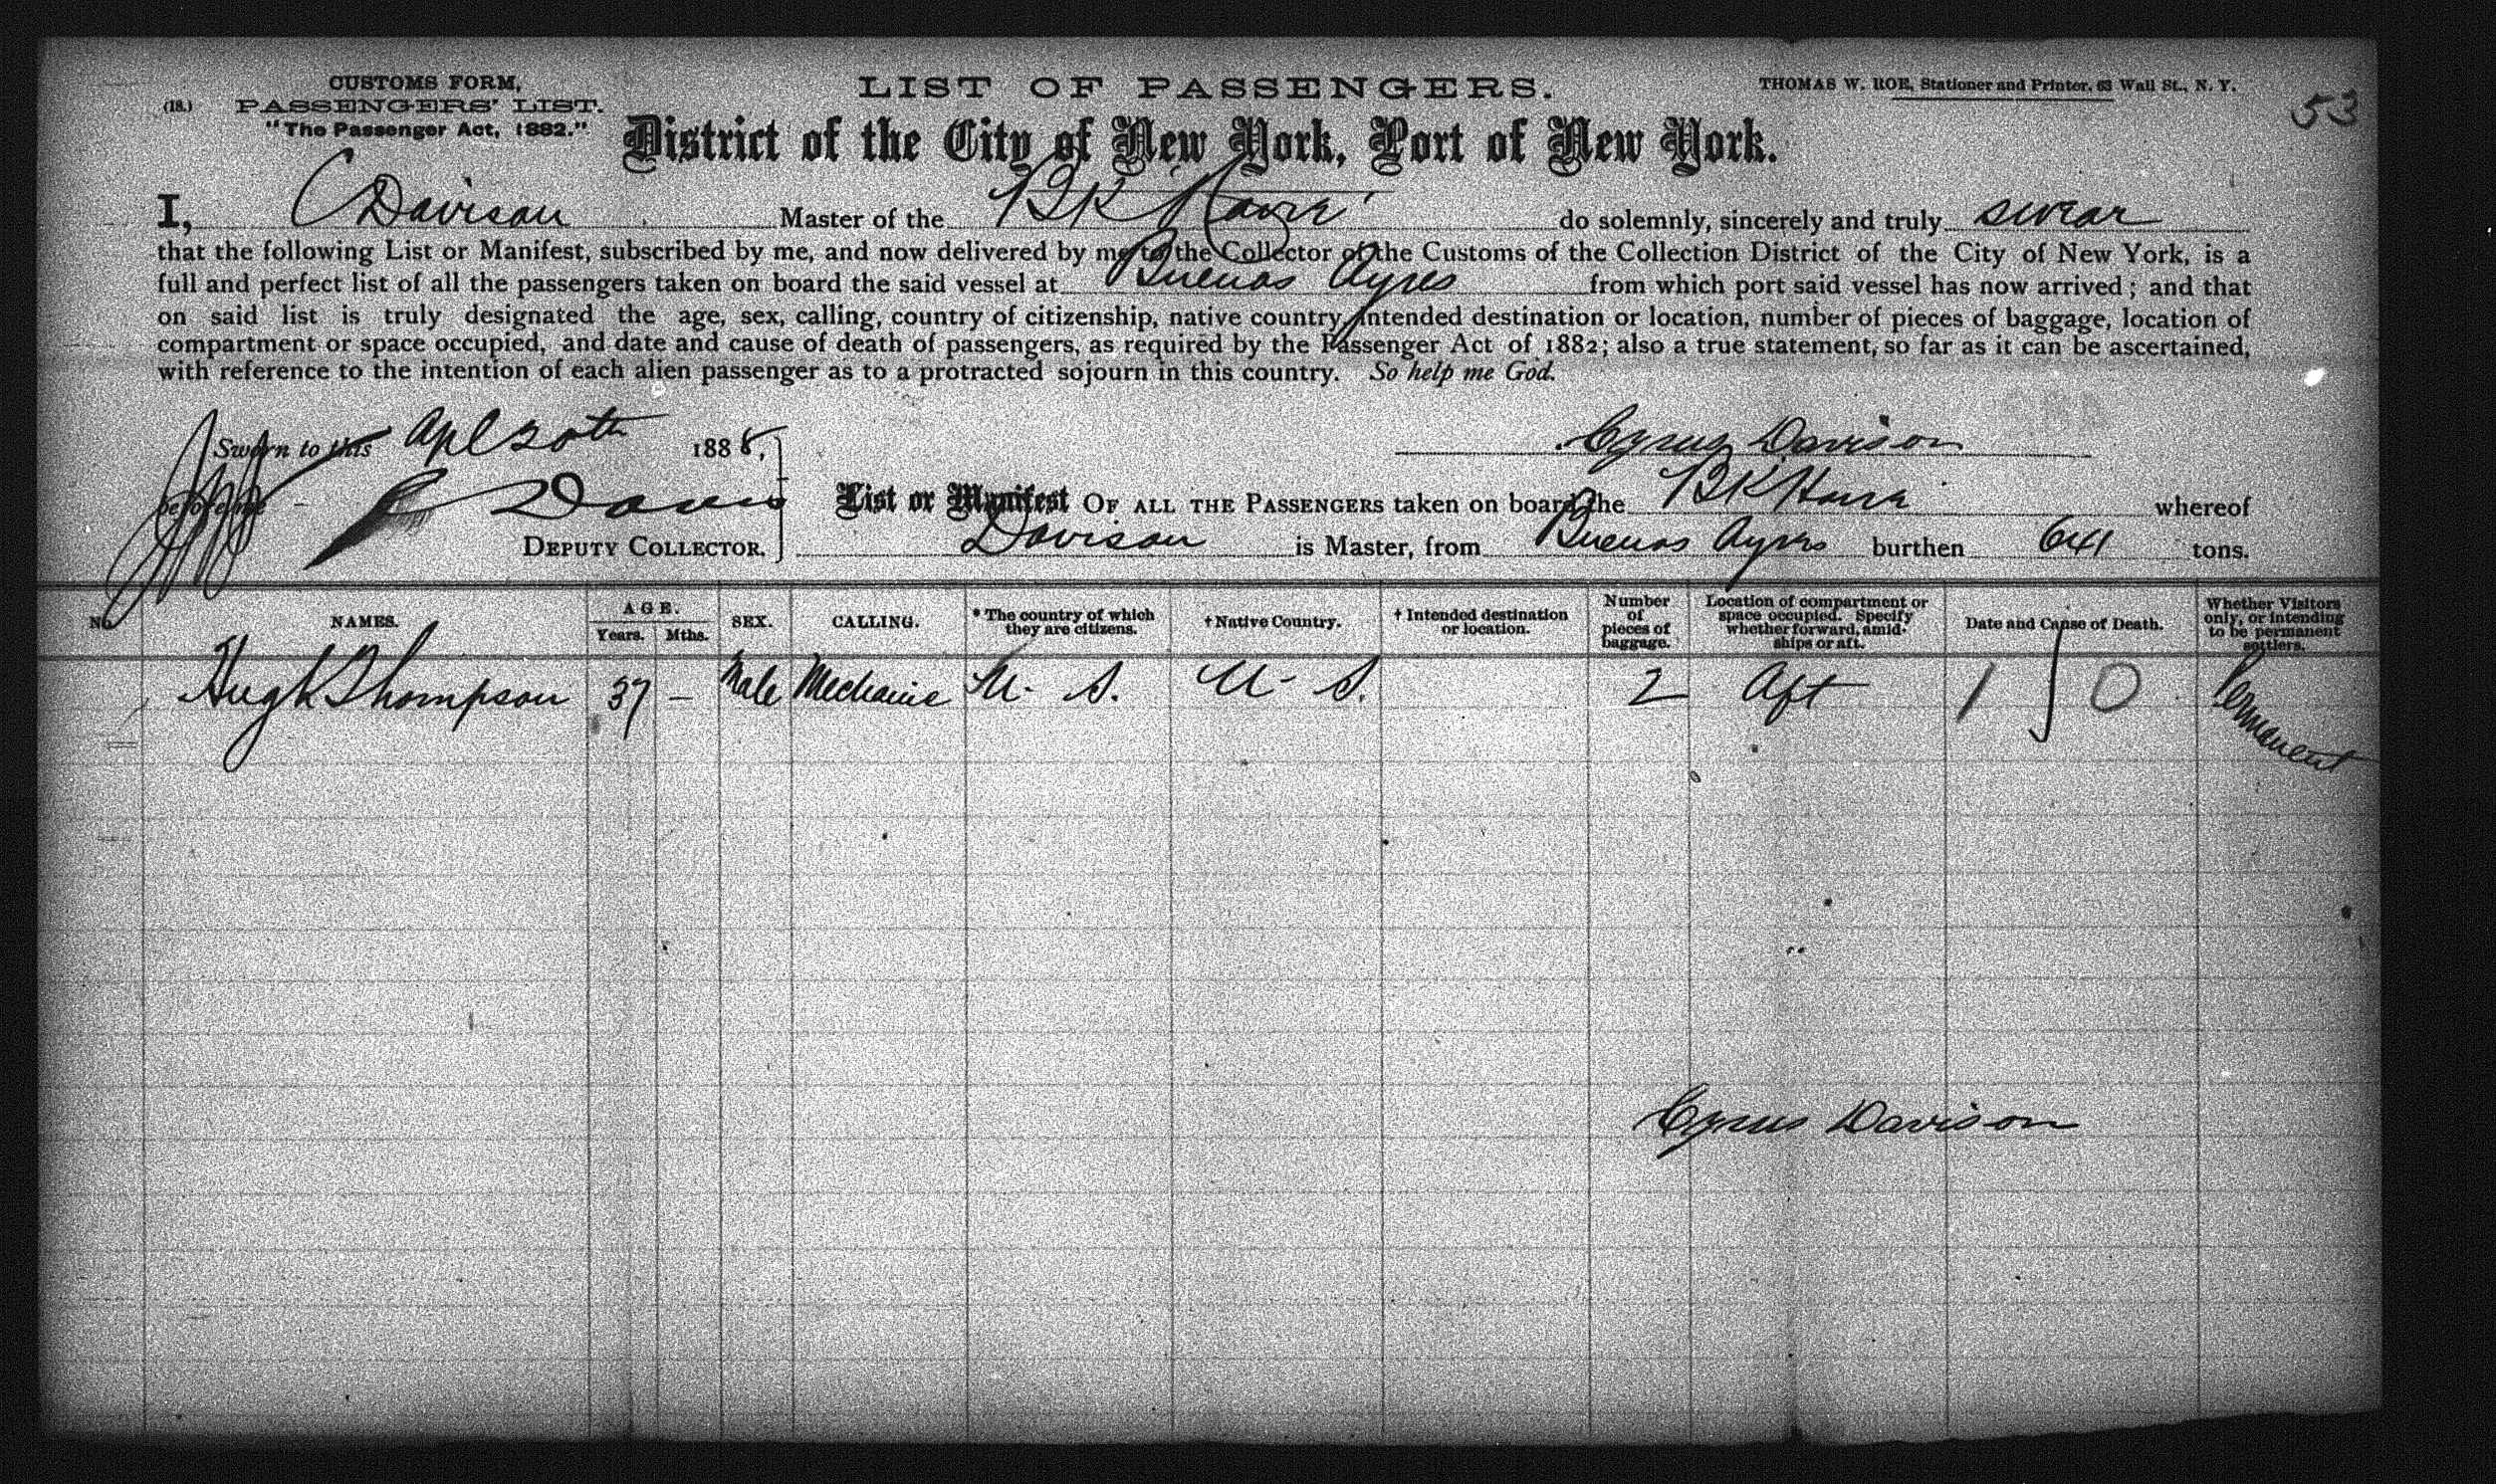 CUSTOMS FORM,
(18.) PASSENGERS' LIST.
"The Passenger Act, 1882."
LIST OF PASSENGERS.
THOMAS W. ROE, Stationer and Printer, 63 Wall St., N. Y.
53
District of the City of New York, Port of New York.
I, C Davison Master of the BK do solemnly, sincerely and truly swear
that the following List or Manifest, subscribed by me, and now delivered by me to the Collector of the Customs of the Collection District of the City of New York, is a
full and perfect list of all the passengers taken on board the said vessel at Buenos Ayres from which port said vessel has now arrived; and that
on said list is truly designated the age, sex, calling, country of citizenship, native country, intended destination or location, number of pieces of baggage, location of
compartment or space occupied, and date and cause of death of passengers, as required by the Passenger Act of 1882; also a true statement, so far as it can be ascertained,
with reference to the intention of each alien passenger as to a protracted sojourn in this country. So help me God.
Sworn to this Apl 20th 1888,
Cyrus Davison
before me
List or Manifest OF ALL THE PASSENGERS taken on board the BK whereof
DEPUTY COLLECTOR.
Davison is Master, from Buenos Ayres burthen 641 tons.
No. NAMES. AGE. Years. Mths. SEX. CALLING. * The country of which they are citizens. † Native Country. † Intended destination or location. Number of pieces of baggage. Location of compartment or space occupied. Specify whether forward, amidships or aft. Date and Cause of Death. Whether Visitors only, or intending to be permanent settlers.
Hugh Thompson 37 — Male Mechanic U. S. U. S. 2 Aft 1 0 Permanent
Cyrus Davison